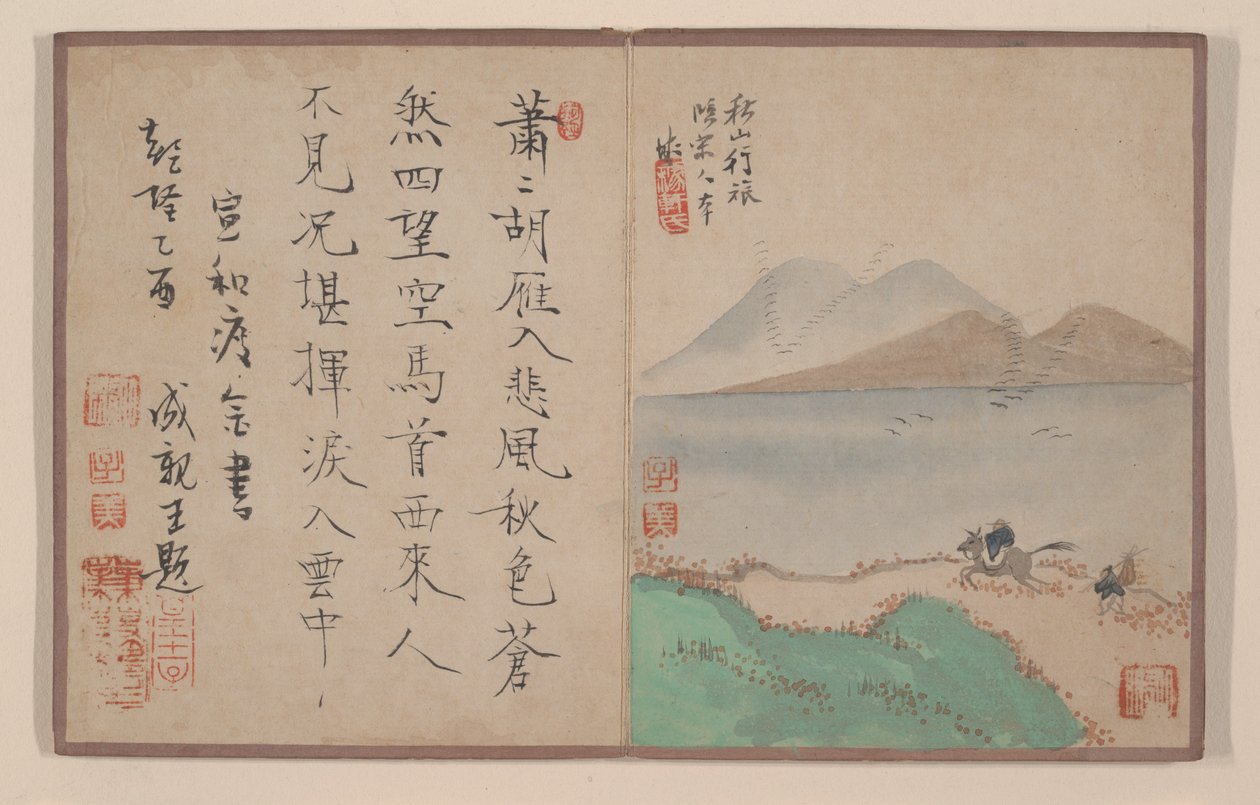 秋山行旅
臨宋人本
蕭〻胡雁入悲風秋色蒼
然四望空馬首西來人
不見况堪揮淚入雲中、
宣和瘦金書
乾隆乙酉 成親王題